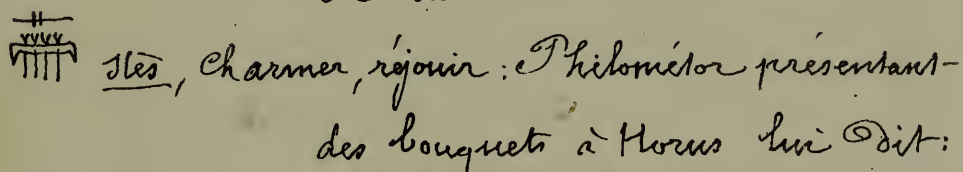 Stes, charmer, réjouir : Philométor présentant-
des bouquets à Horus lui Dit :